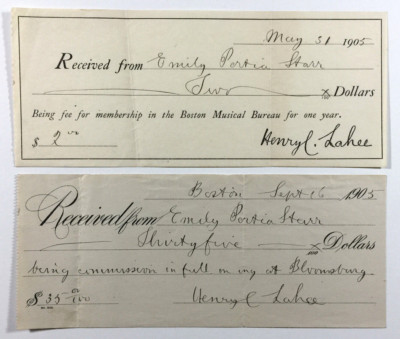 May 31 1905
Received from Emily Portia Starr
Two Dollars
Being fee for membership in the Boston Musical Bureau for one year.
$ 2.00 Henry C. Lahee
Boston Sept 16 1905
Received from Emily Portia Starr
Thirty five Dollars
being commission in full on eng at Bloomsburg
$ 35 00/100 Henry C Lahee